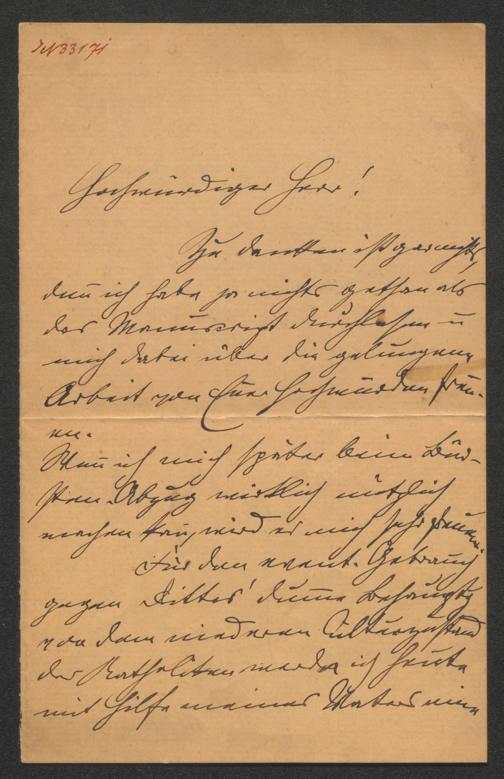 IN 33171
Hochwürdiger Herr!
Zu danken ist gar nichts,
denn ich habe ja nichts gethan als
das Manuscript durchlesen u
mich dabei über die gelungene
Arbeit von Euer Hochwürden freu-
en.
Wenn ich mich später beim Bür-
sten-Abzug wirklich nützlich
machen kann, wird es mich sehr freuen.
Für den event. Gebrauch
gegen Dittes' dumme Behauptg
von dem niederen Culturzustand
der Katholiken werde ich heute
mit Hilfe meines Vaters eine